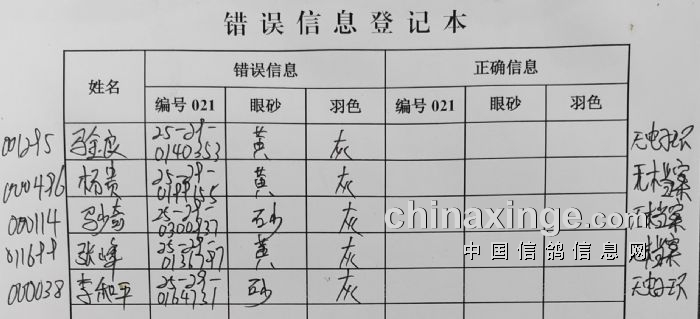 错误信息登记本
姓名 错误信息 正确信息
编号021 眼砂 羽色 编号021 眼砂 羽色
001295 马金良 25-29-0140353 黄 灰 无电子环
0000496 杨贵 25-29- 黄 灰 无档案
000114 25-29- 砂 灰 无档案
张峰 25-29- 黄 灰 档案
000038 李和平 25-29-0164731 砂 灰 无电子环
chinaxinge.com
中国信鸽信息网